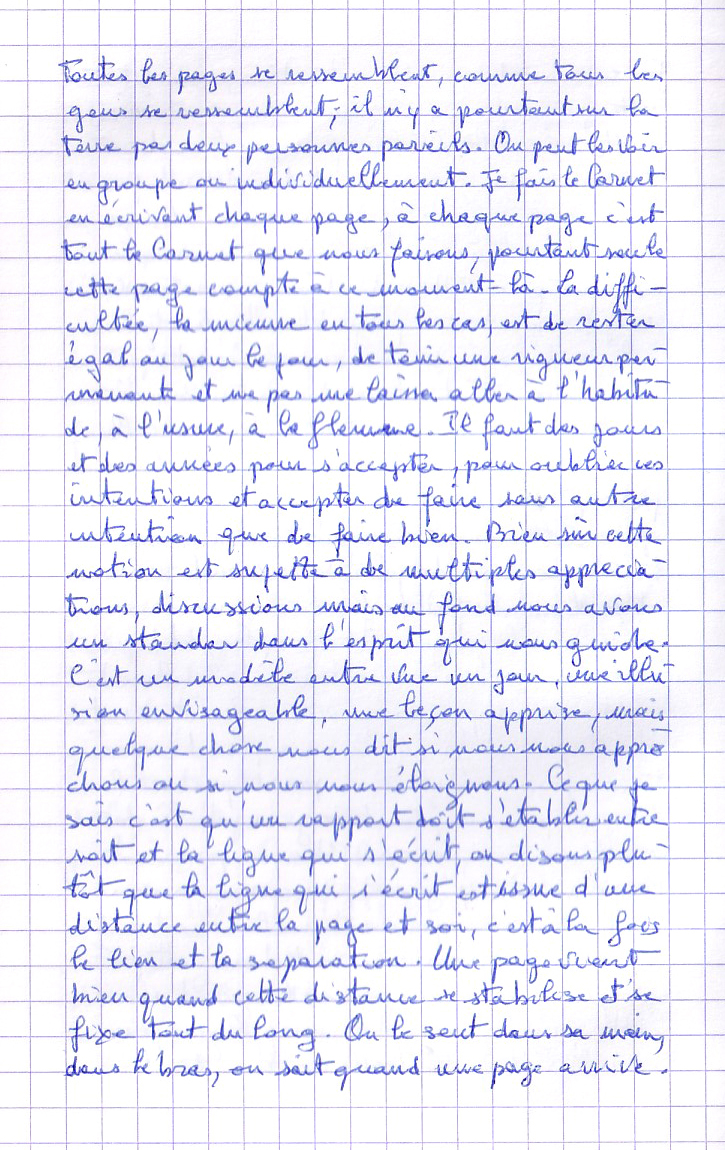 Toutes les pages se ressemblent, comme tous les
gens se ressemblent, il n'y a pourtant sur la
terre pas deux personnes pareils. On peut les voir
en groupe ou individuellement. Je fais le Carnet
en écrivant chaque page, à chaque page c'est
tout le Carnet que nous faisons, pourtant seule
cette page compte à ce moment-là. La diffi-
cultée, la mienne en tous les cas, est de rester
égal au jour le jour, de tenir une rigueur per-
manente et ne pas me laisser aller à l'habitu-
de, à l'usure, à la flemme. Il faut des jours
et des années pour s'accepter, pour oublier ces
intentions et accepter de faire sans autre
intention que de faire bien. Bien sûr cette
notion est sujette à de multiples apprecia-
tions, discussions mais au fond nous avons
un standar dans l'esprit qui nous guide.
C'est un modèle entre vue un jour, une illu-
sion envisageable, une leçon apprise, mais
quelque chose nous dit si nous nous appro-
chons ou si nous nous éloignons. Ce que je
sais c'est qu'un rapport doit s'établir entre
soit et la ligne qui s'écrit, ou disons plu-
tôt que la ligne qui s'écrit est issue d'une
distance entre la page et soi, c'est à la fois
le lien et la separation. Une page vient
bien quand cette distance se stabilise et se
fixe tout du long. On le sent dans sa main,
dans le bras, on sait quand une page arrive.